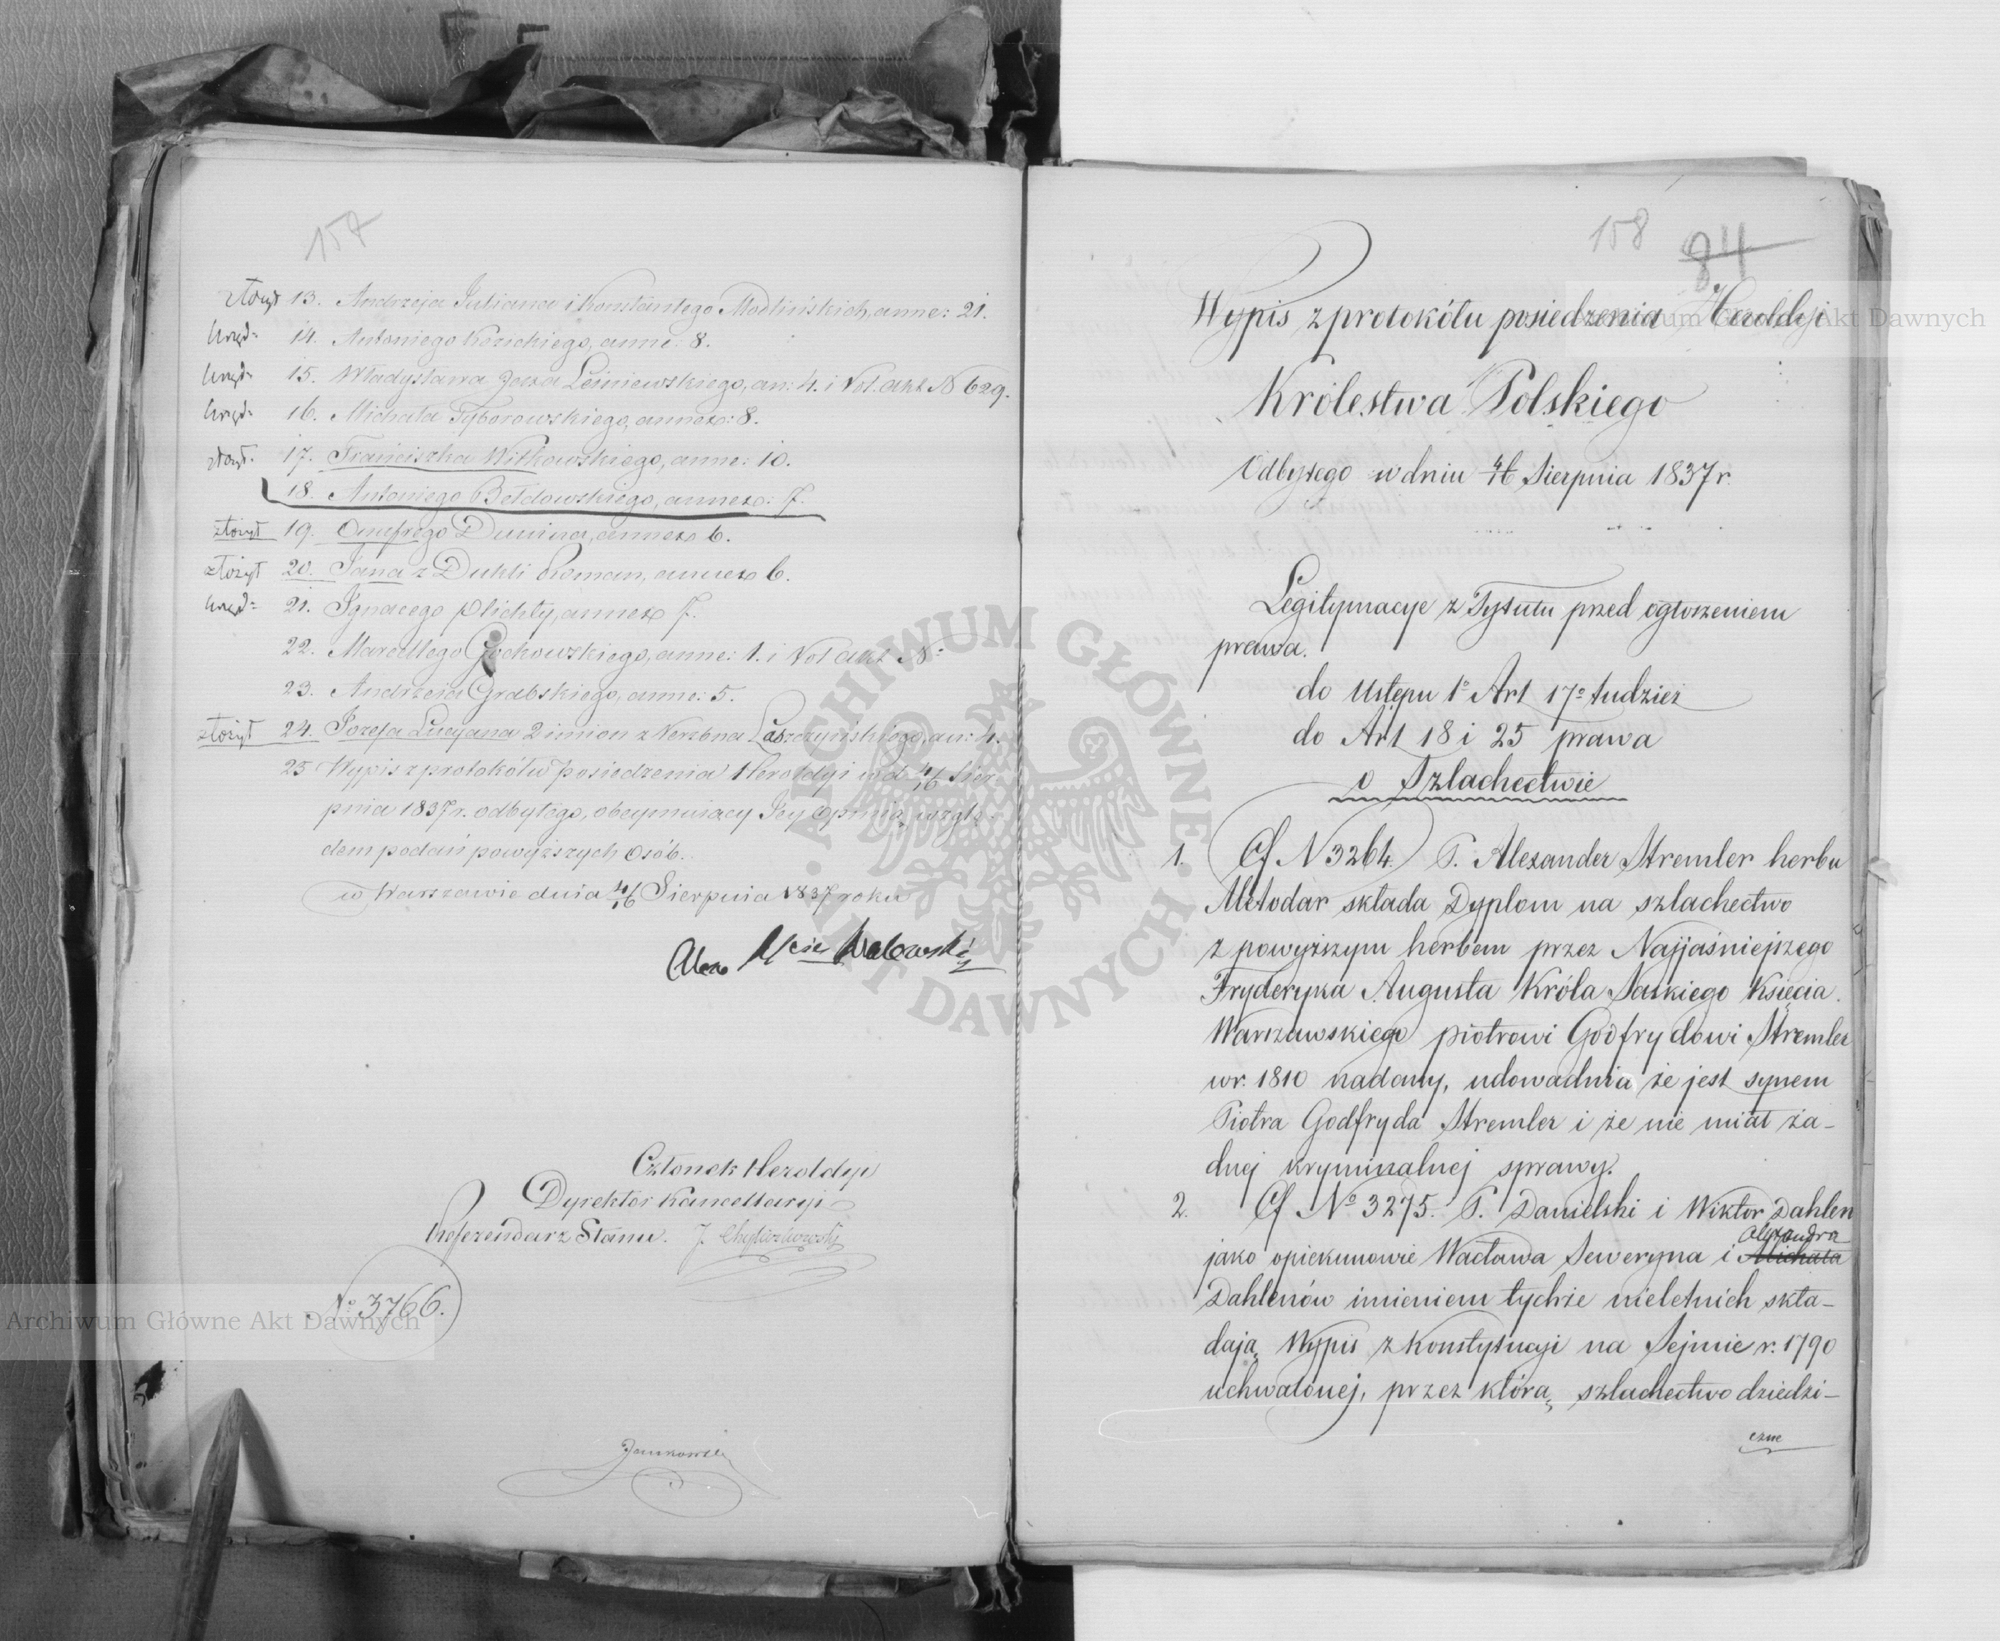 157
złożył 13. Andrzeja Juliana i Konstantego Modlińskich, anne: 21.
Urzęd: 14. Antoniego Kozickiego, anne: 8.
Urzęd: 15. Władysława Jaxa Leśniewskiego, an: 4. i Vol. akt N 629.
Urzęd: 16. Michała Tyborowskiego, annex: 8.
złożył. 17. Franciszka Witkowskiego, anne: 10.
18. Antoniego Bełdowskiego, annex: 7.
złożył 19. Onufrego Dunina, annex 6.
złożył 20. Jana z Dukli Roman, annex 6.
Urzęd: 21. Ignacego Plichty, annex 7.
22. Marcellego Gockowskiego, anne: 1. i Vol akt No
23. Andrzeia Grabskiego, anne: 5.
złożył 24. Jozefa Lucyana 2 imion z Nerzbna Laszczyńskiego, an: 4.
25 Wypis z protokółu posiedzenia Heroldyi w d 4/16 Sier-
pnia 1837 r. odbytego, obeymuiący Jey Opinią wzglę-
dem podań powyższych Osób.
w Warszawie dnia 4/16 Sierpnia 1837 roku
Alex Walewski
Członek Heroldyi
Dyrektor Kancellaryi
Referendarz Stanu.
No 3766.
Jankowski
158
84
Wypis z protokółu posiedzenia Heroldyi
Królestwa Polskiego
Odbytego w dniu 4/16 Sierpnia 1837 r.
Legitymacye z Tytułu przed ogłoszeniem
prawa.
do Ustępu 1o Art 17o tudzież
do Art 18 i 25 prawa
o Szlachectwie
1. Cf N 3264 P. Alexander Stremler herbu
Metodar składa Dyplom na szlachectwo
z powyższym herbem przez Najjaśniejszego
Fryderyka Augusta Króla Saskiego Księcia
Warszawskiego piotrowi Godfrydowi Stremler
w r. 1810 nadany, udowadnia że jest synem
Piotra Godfryda Stremler i że nie miał ża-
dnej kryminalnej sprawy.
2. Cf No 3275. P. Danielski i Wiktor Dahlen
Alexandra
jako opiekunowie Wacława Seweryna i Michała
Dahlenów imieniem tychże nieletnich skła-
dają Wypis z Konstytucyi na Sejmie r. 1790
uchwalonej, przez którą szlachectwo dziedzi-
czne
ARCHIWUM GŁÓWNE AKT DAWNYCH
Archiwum Główne Akt Dawnych
Archiwum Główne Akt Dawnych